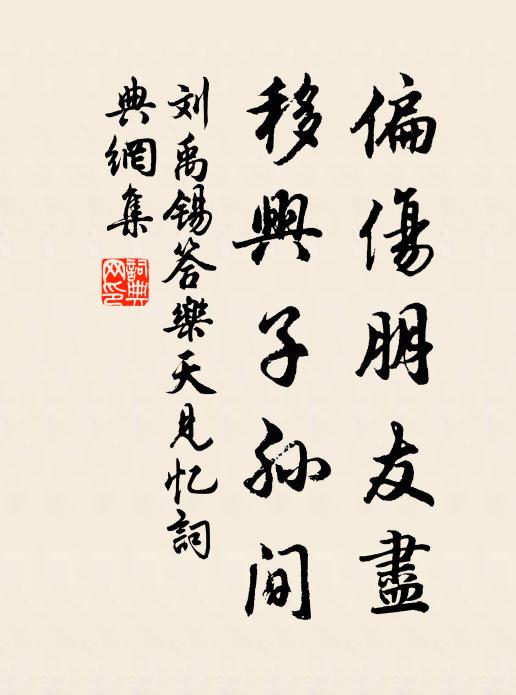 偏傷朋友盡
移興子孙间
刘禹锡答樂天見忆詞
典網集
詞典
网印